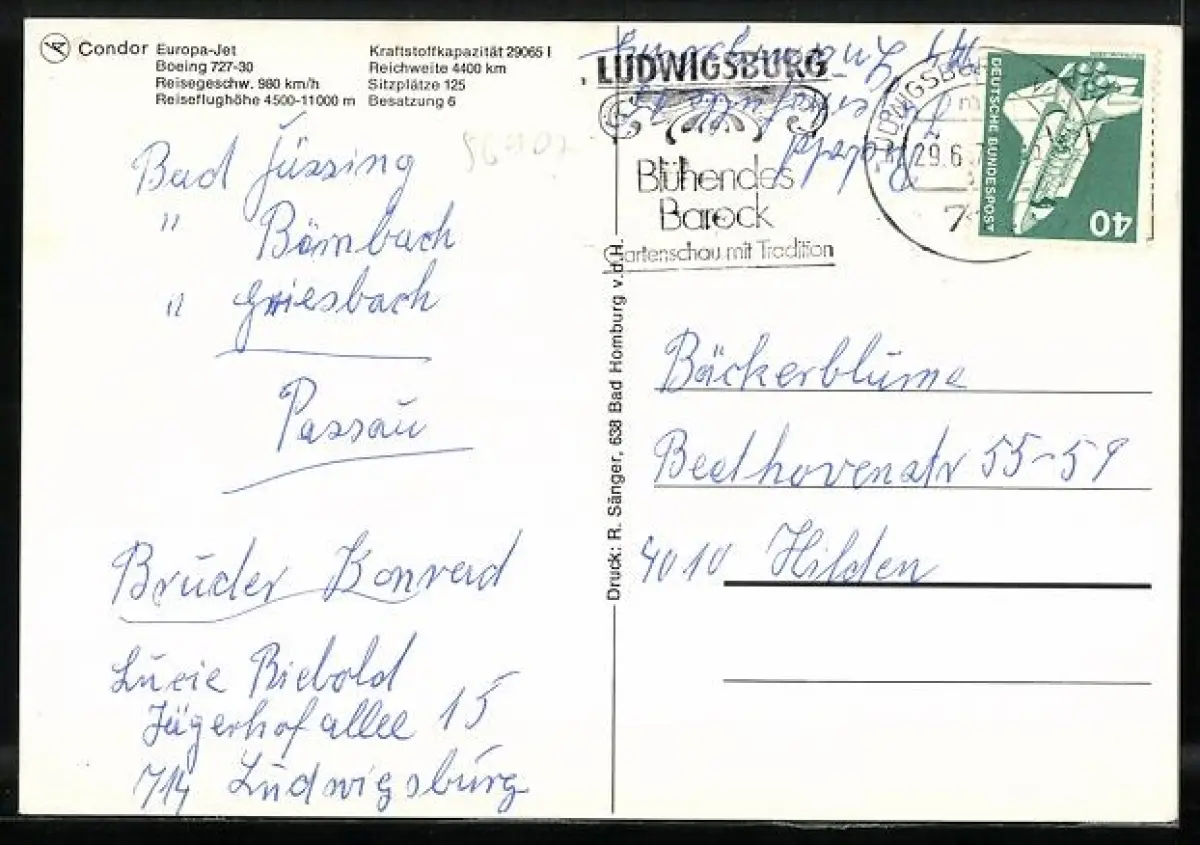 Condor Europa-Jet
Boeing 727-30
Reisegeschw. 980 km/h
Reiseflughöhe 4500-11000 m
Kraftstoffkapazität 29065 l
Reichweite 4400 km
Sitzplätze 125
Besatzung 6
Bad Füssing
" Birnbach
" Griesbach
Passau
Bruder Konrad
Lucie Biebold
Jägerhofallee 15
714 Ludwigsburg
Druck: R. Sänger, 638 Bad Homburg v.d.H.
LUDWIGSBURG
Blühendes
Barock
Gartenschau mit Tradition
29.6.
DEUTSCHE BUNDESPOST
40
Bäckerblume
Beethovenstr 55-59
4010 Hilden